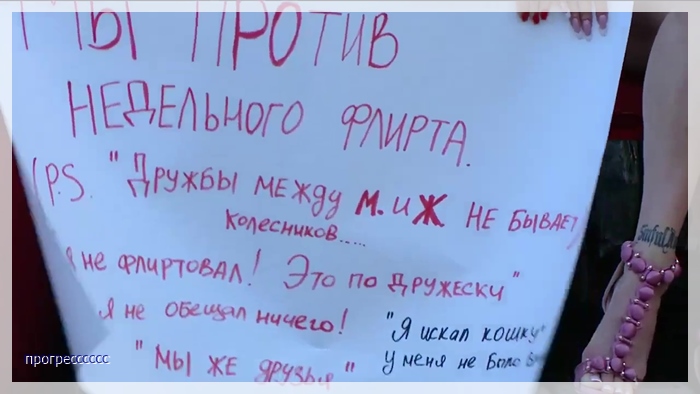 МЫ ПРОТИВ
НЕДЕЛЬНОГО ФЛИРТА.
(P.S. "ДРУЖБЫ МЕЖДУ М. И Ж НЕ БЫВАЕТ)
КОЛЕСНИКОВ.....
Я НЕ ФЛИРТОВАЛ! ЭТО ПО ДРУЖЕСКИ"
Я НЕ ОБЕЩАЛ НИЧЕГО!
"МЫ ЖЕ ДРУЗЬЯ"
"Я ИСКАЛ КОШКУ"
У МЕНЯ НЕ БЫЛО
прогрессссcc